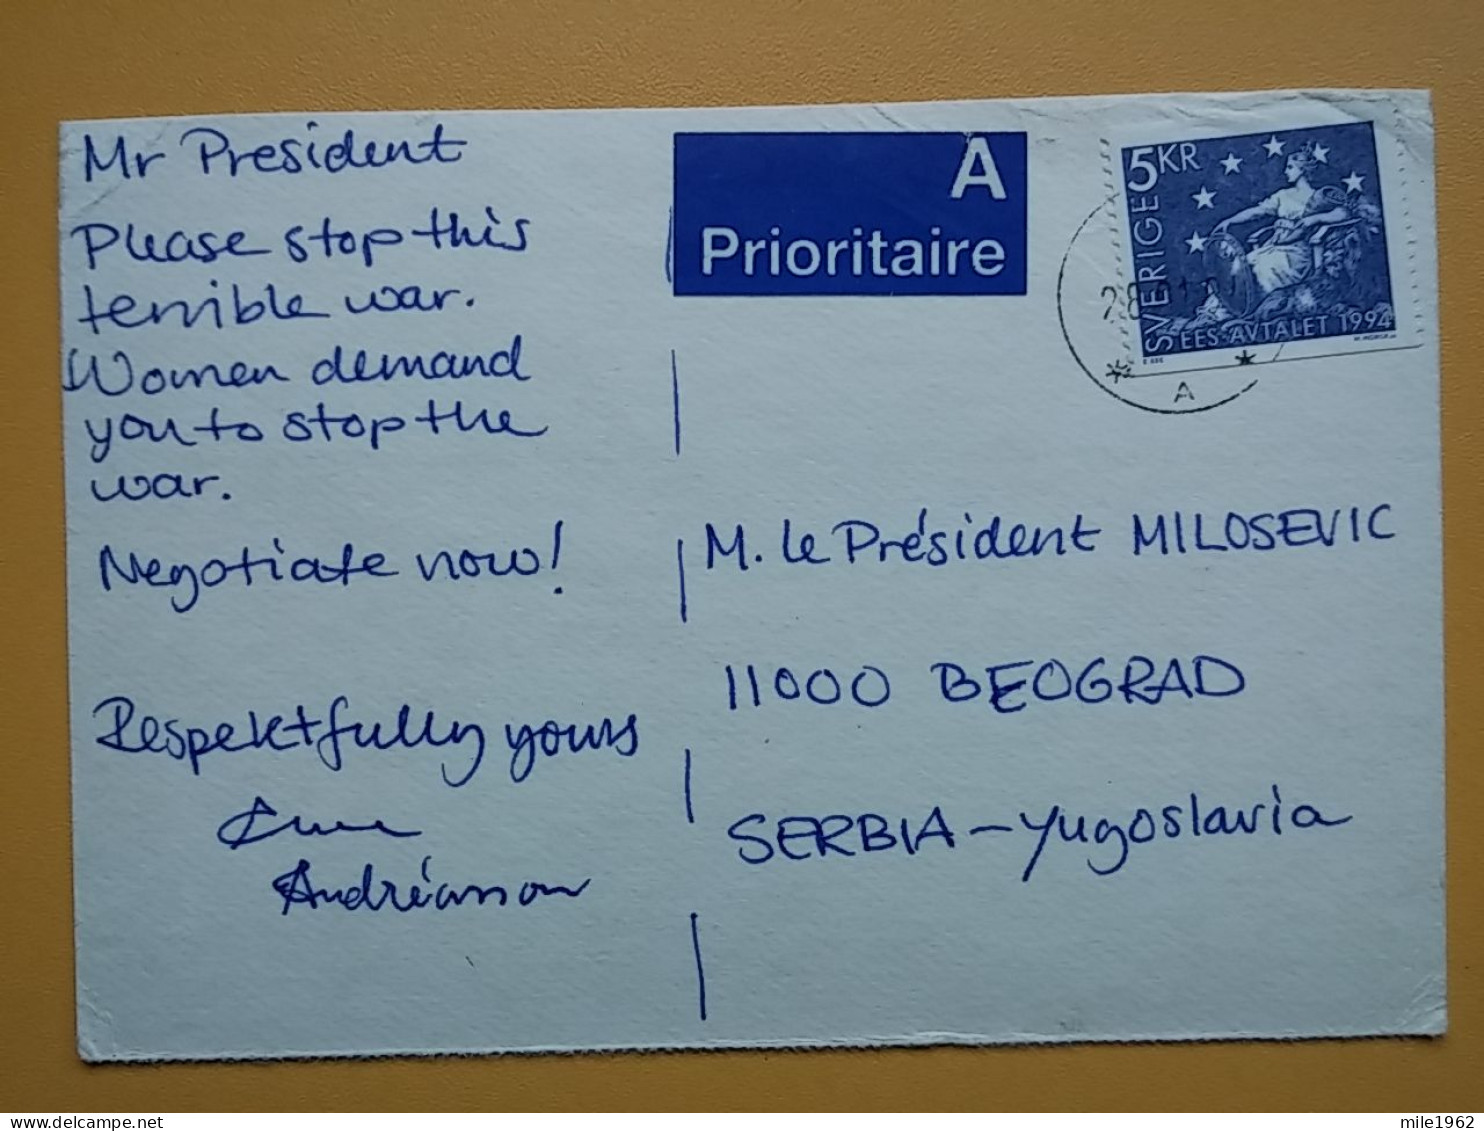 Mr President
Please stop this
terrible war.
Women demand
you to stop the
war.
Negotiate now!
Respektfully yours
Andréasson
A
Prioritaire
5KR
SVERIGE
EES-AVTALET 1994
A
M. le Président MILOSEVIC
11000 BEOGRAD
SERBIA - Yugoslavia
mile1962